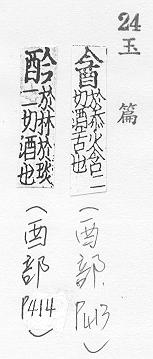 24 玉篇
酓 於忝火含二
切酒苦也
(酉部 P413)
於林於琰
二切酒也
(酉部 P414)